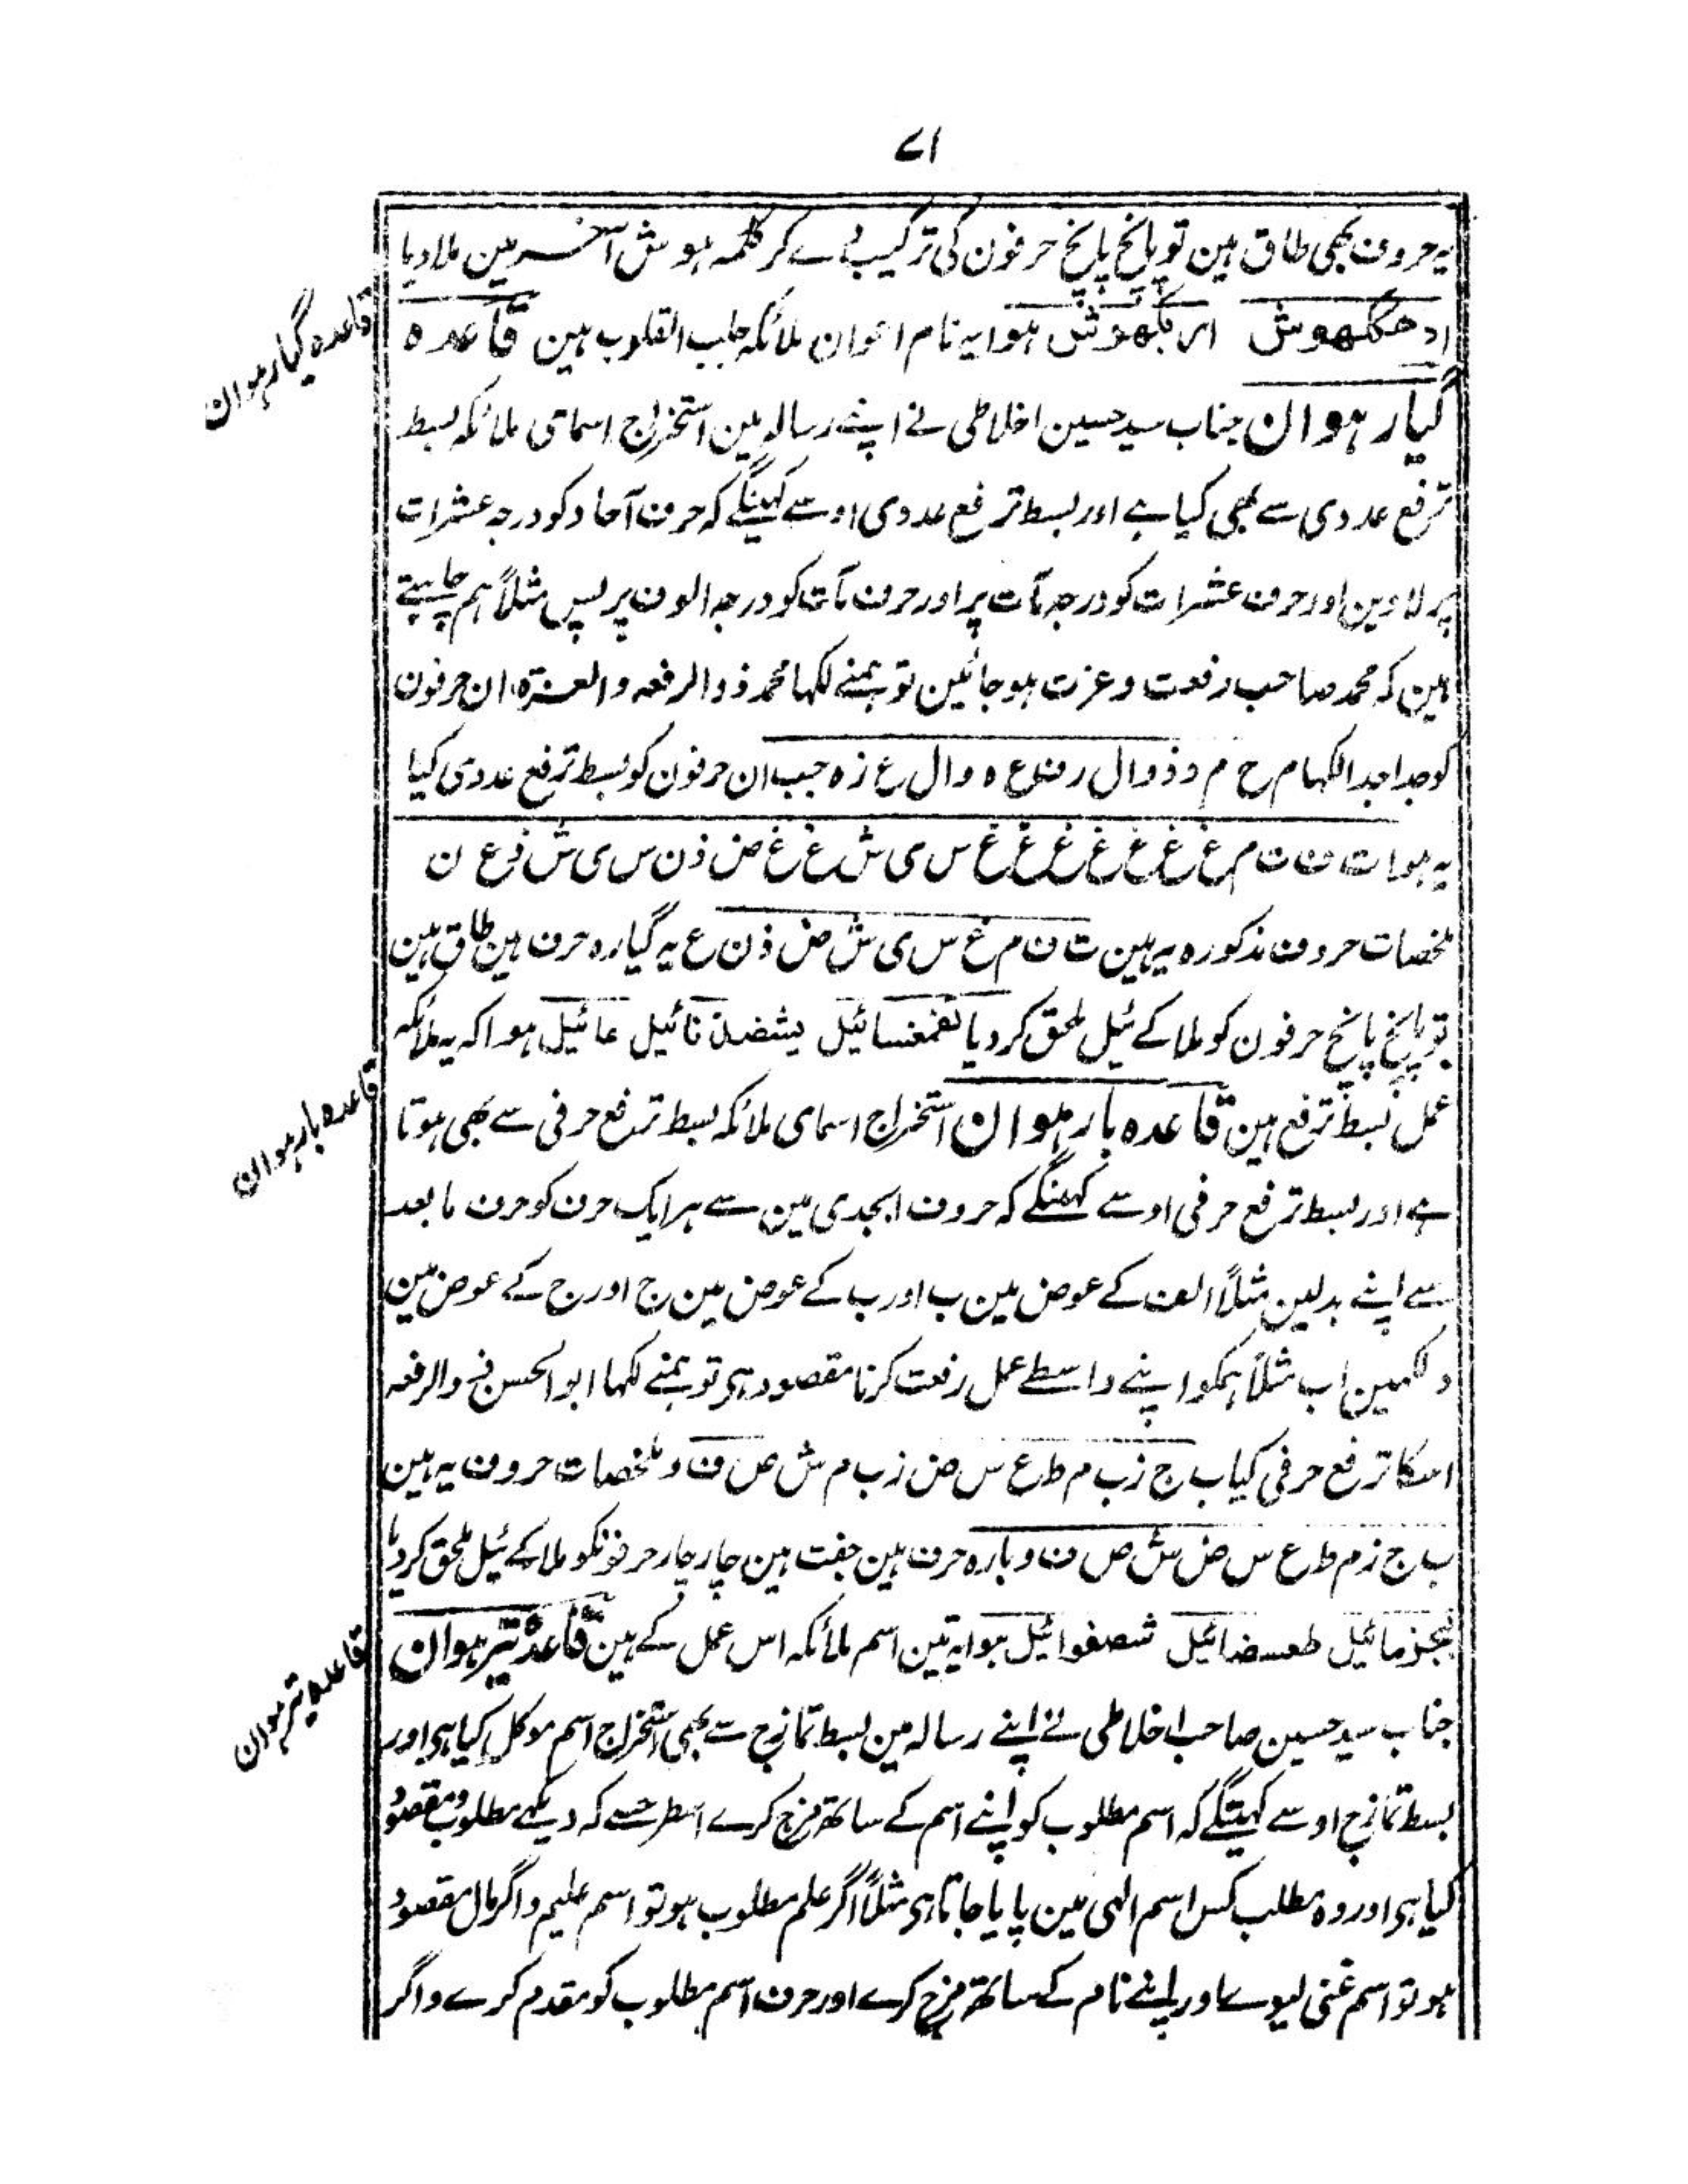 ۷۱
یہ حروف بھی طاق ہین تو پانچ پانچ حرفون کی ترکیب دے کر کلمہ ہوش آخر مین ملا دیا
ہوا یہ نام اعوان ملائکہ جلب القلوب ہین قاعدہ
قاعدہ گیارہوان
گیارہوان جناب سید حسین اخلاطی نے اپنے رسالہ مین استخراج اسمای ملائکہ بسط
ترفع عددی سے بھی کیا ہے اور بسط ترفع عددی اوسے کہینگے کہ حرف آحاد کو درجہ عشرات
پر لاوین اور حرف عشرات کو درجہ مآت پر اور حرف مآت کو درجہ الوف پر پس مثلاً ہم چاہتے
ہین کہ محمد صاحب رفعت و عزت ہو جائین تو ہمنے لکہا محمد ذو الرفعہ والعزۃ ان حرفون
کو جدا جدا لکہا م ح م د ذ و ا ل ر ف ع ہ و ا ل ع ز ہ جب ان حرفون کو بسط ترفع عددی کیا
یہ ہوا ت ف ت م غ غ غ غ غ غ غ س ی ش غ غ ض ذ ن س ی ش ذ ع ن
ملخصات حروف مذکورہ یہ ہین ت ف م غ س ی ش ض ذ ن ع یہ گیارہ حرف ہین طاق ہین
تو پانچ پانچ حرفون کو ملا کے ئیل ملحق کر دیا تفمغسائیل یشضذنائیل عائیل ہوا کہ یہ ملائکہ
عمل بسط ترفع ہین قاعدہ بارہوان استخراج اسمای ملائکہ بسط ترفع حرفی سے بھی ہوتا
قاعدہ بارہوان
ہے اور بسط ترفع حرفی اوسے کہینگے کہ حروف ابجدی مین سے ہر ایک حرف کو حرف ما بعد
سے اپنے بدلین مثلاً الف کے عوض مین ب اور ب کے عوض مین ج اور ج کے عوض مین
د لکہین اب مثلاً ہمکو اپنے واسطے عمل رفعت کرنا مقصود ہی تو ہمنے لکہا ابو الحسن ذو الرفعہ
اسکا ترفع حرفی کیا ب ج ز ب م ط ع س ض ز ب م ش ص ف و ملخصات حروف یہ ہین
ب ج ز م ط ع س ض ش ص ف و بارہ حرف ہین جفت ہین چار چار حرفونکو ملا کے ئیل ملحق کر دیا
بجزمائیل طعسضائیل شصفوائیل ہوا یہ تین اسم ملائکہ اس عمل کے ہین قاعدہ تیرہوان
قاعدہ تیرہوان
جناب سید حسین صاحب اخلاطی نے اپنے رسالہ مین بسط تمازج سے بھی استخراج اسم موکل کیا ہی اور
بسط تمازج اوسے کہینگے کہ اسم مطلوب کو اپنے اسم کے ساتھ مزج کرے اسطرحسے کہ دیکہے مطلوب و مقصود
کیا ہی اور وہ مطلب کس اسم الٰہی مین پایا جاتا ہی مثلاً اگر علم مطلوب ہو تو اسم علیم و اگر مال مقصود
ہو تو اسم غنی لیوے اور اپنے نام کے ساتھ مزج کرے اور حرف اسم مطلوب کو مقدم کرے و اگر